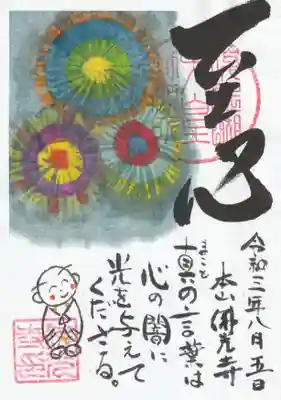 至心
令和三年八月五日
本山佛光寺
真の言葉は
まこと
心の闇に
光を与えて
くださる。